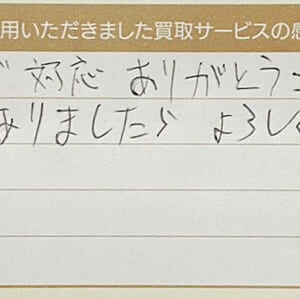 用いただきました買取サービスの感
対応 ありがとう
ありましたら よろしく